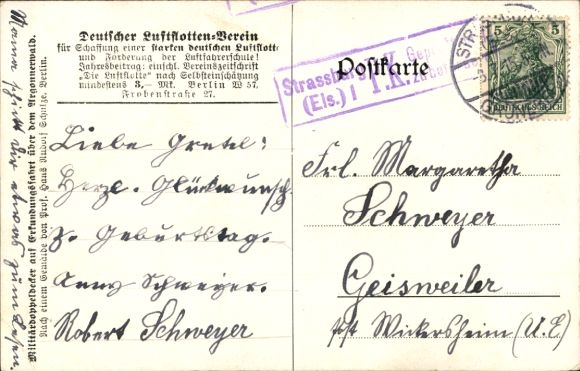 Deutscher Luftflotten-Verein
für Schaffung einer starken deutschen Luftflotte
und Förderung der Luftfahrerschule!
Jahresbeitrag: einschl. Vereinszeitschrift
"Die Luftflotte" nach Selbsteinschätzung
mindestens 3,- Mk. Berlin W 57,
Frobenstraße 27.
Militärdoppeldecker auf Erkundungsfahrt über dem Argonnerwald.
Nach einem Gemälde von Prof. Hans Rudolf Schulze, Berlin.
Postkarte
Strassburg
(Els.) 1
P.K.
5
5
DEUTSCHES REICH
Liebe Gretel!
Herzl. Glückwunsch
z. Geburtstag.
Schweyer.
Robert Schweyer
Frl. Margaretha
Schweyer
Geisweiler
Post Wickersheim (U.E)